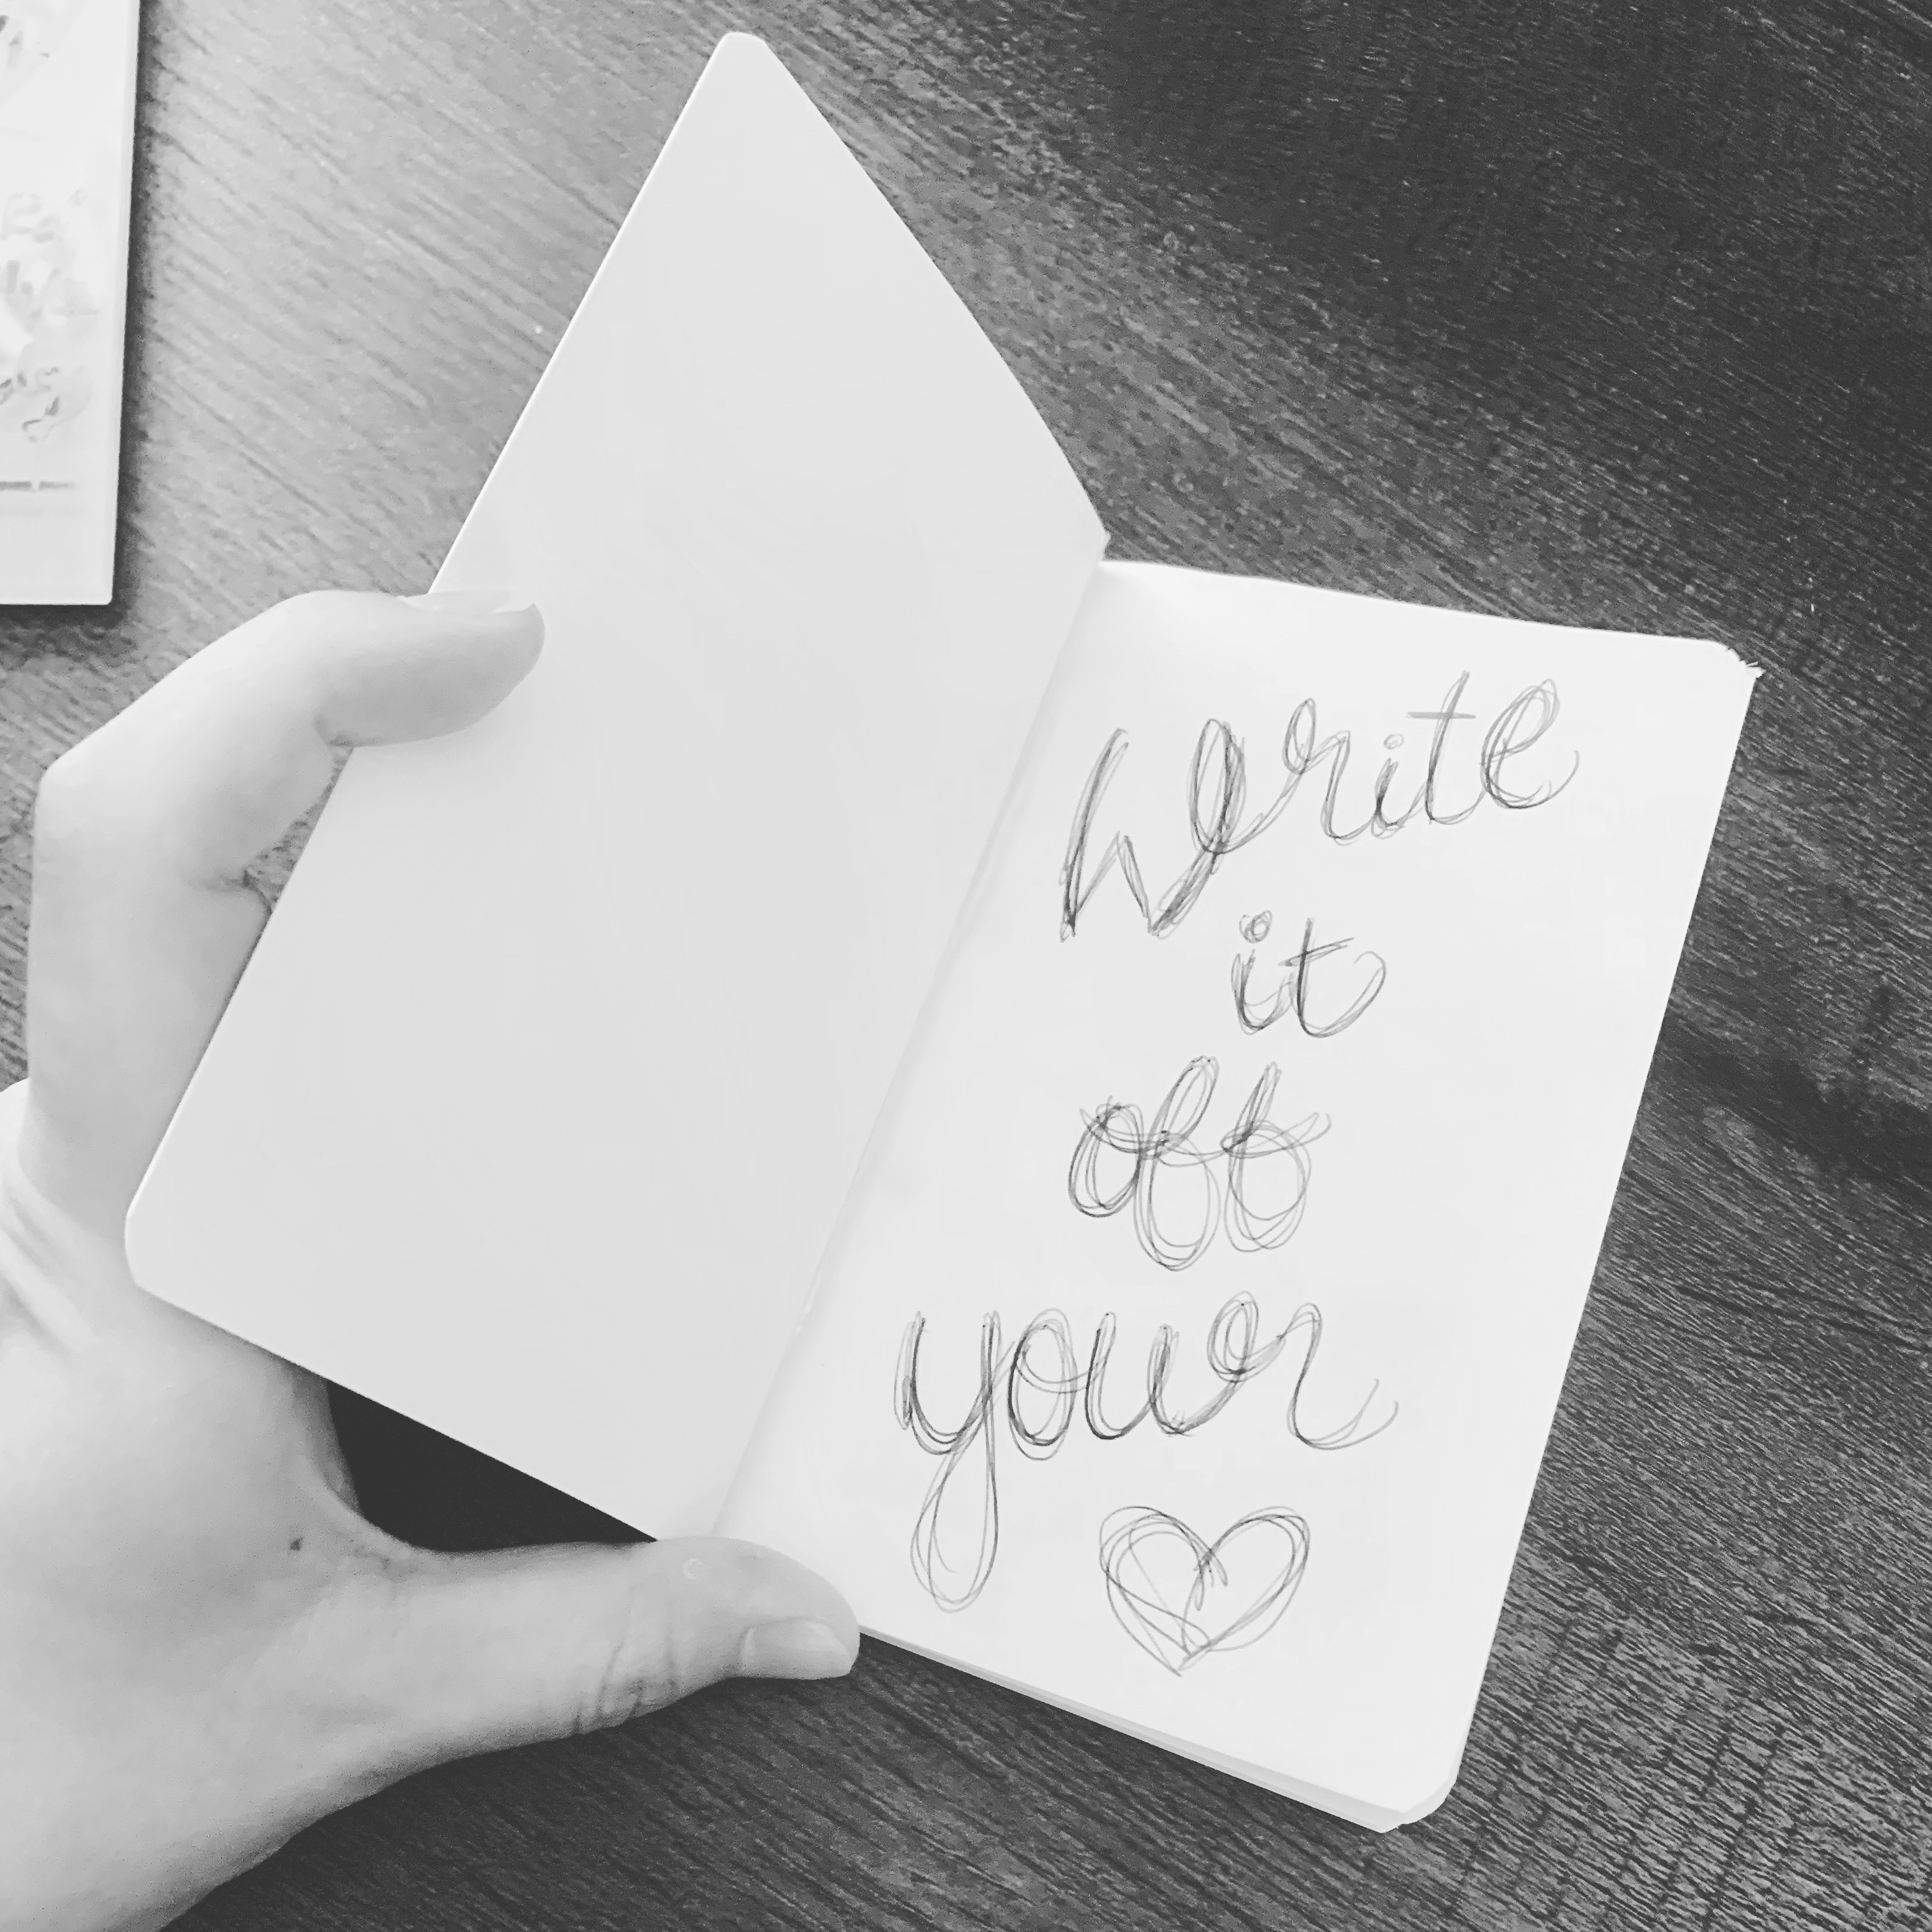 Write
it
off
your